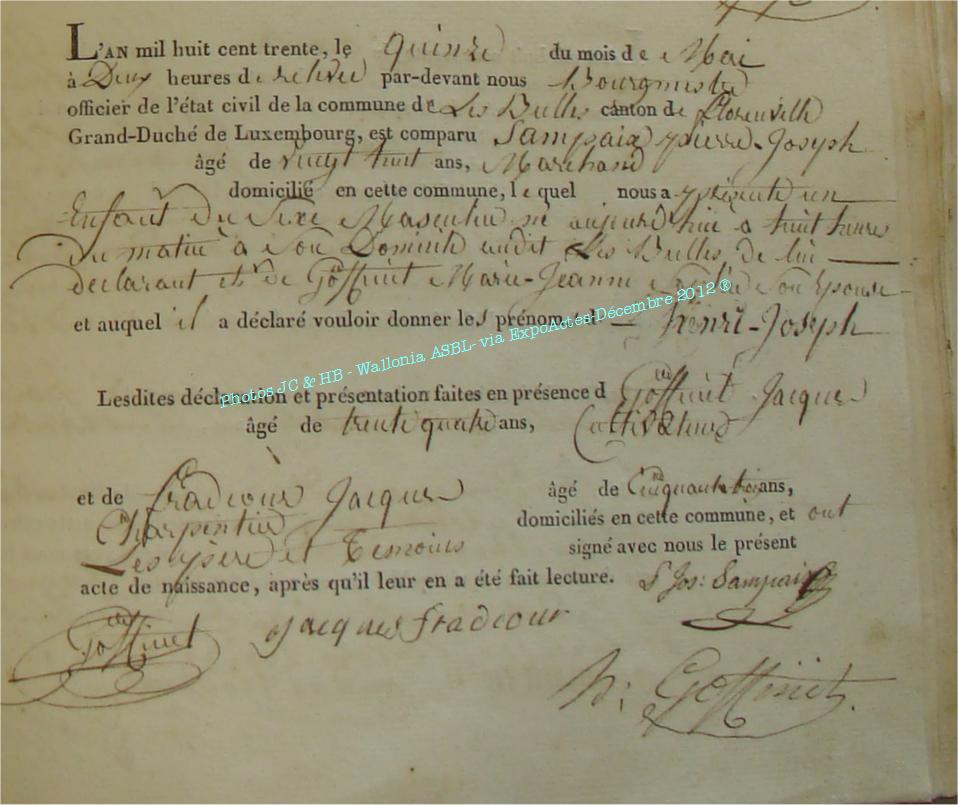 L'AN mil huit cent trente, le quinze du mois de Mai
à Deux heures de relevée par-devant nous Bourgmestre
officier de l'état civil de la commune de Les Bulles canton de florenville
Grand-Duché de Luxembourg, est comparu Sampaix pierre-Joseph
âgé de vingt huit ans, Marchand
domicilié en cette commune, lequel nous a présenté un
Enfant du Sexe Masculin né aujourd'hui a huit heures
du matin à son Domicile audit Les Bulles, de lui
declarant et de Goffinet Marie-Jeanne son Epouse
et auquel il a déclaré vouloir donner les prénom Henri-Joseph
Photos JC & HB - Wallonia ASBL - via ExpoActes-Décembre 2012 ®
Lesdites déclaration et présentation faites en présence d Goffinet Jacques
âgé de trente quatre ans, Cultivateur
et de fradcour Jacques âgé de Cinquante trois ans,
Charpentier domiciliés en cette commune, et ont
Les père et Temoins signé avec nous le présent
acte de naissance, après qu'il leur en a été fait lecture. P Jos: Sampaix
Goffinet Jacques fradcour
h: Goffinet.